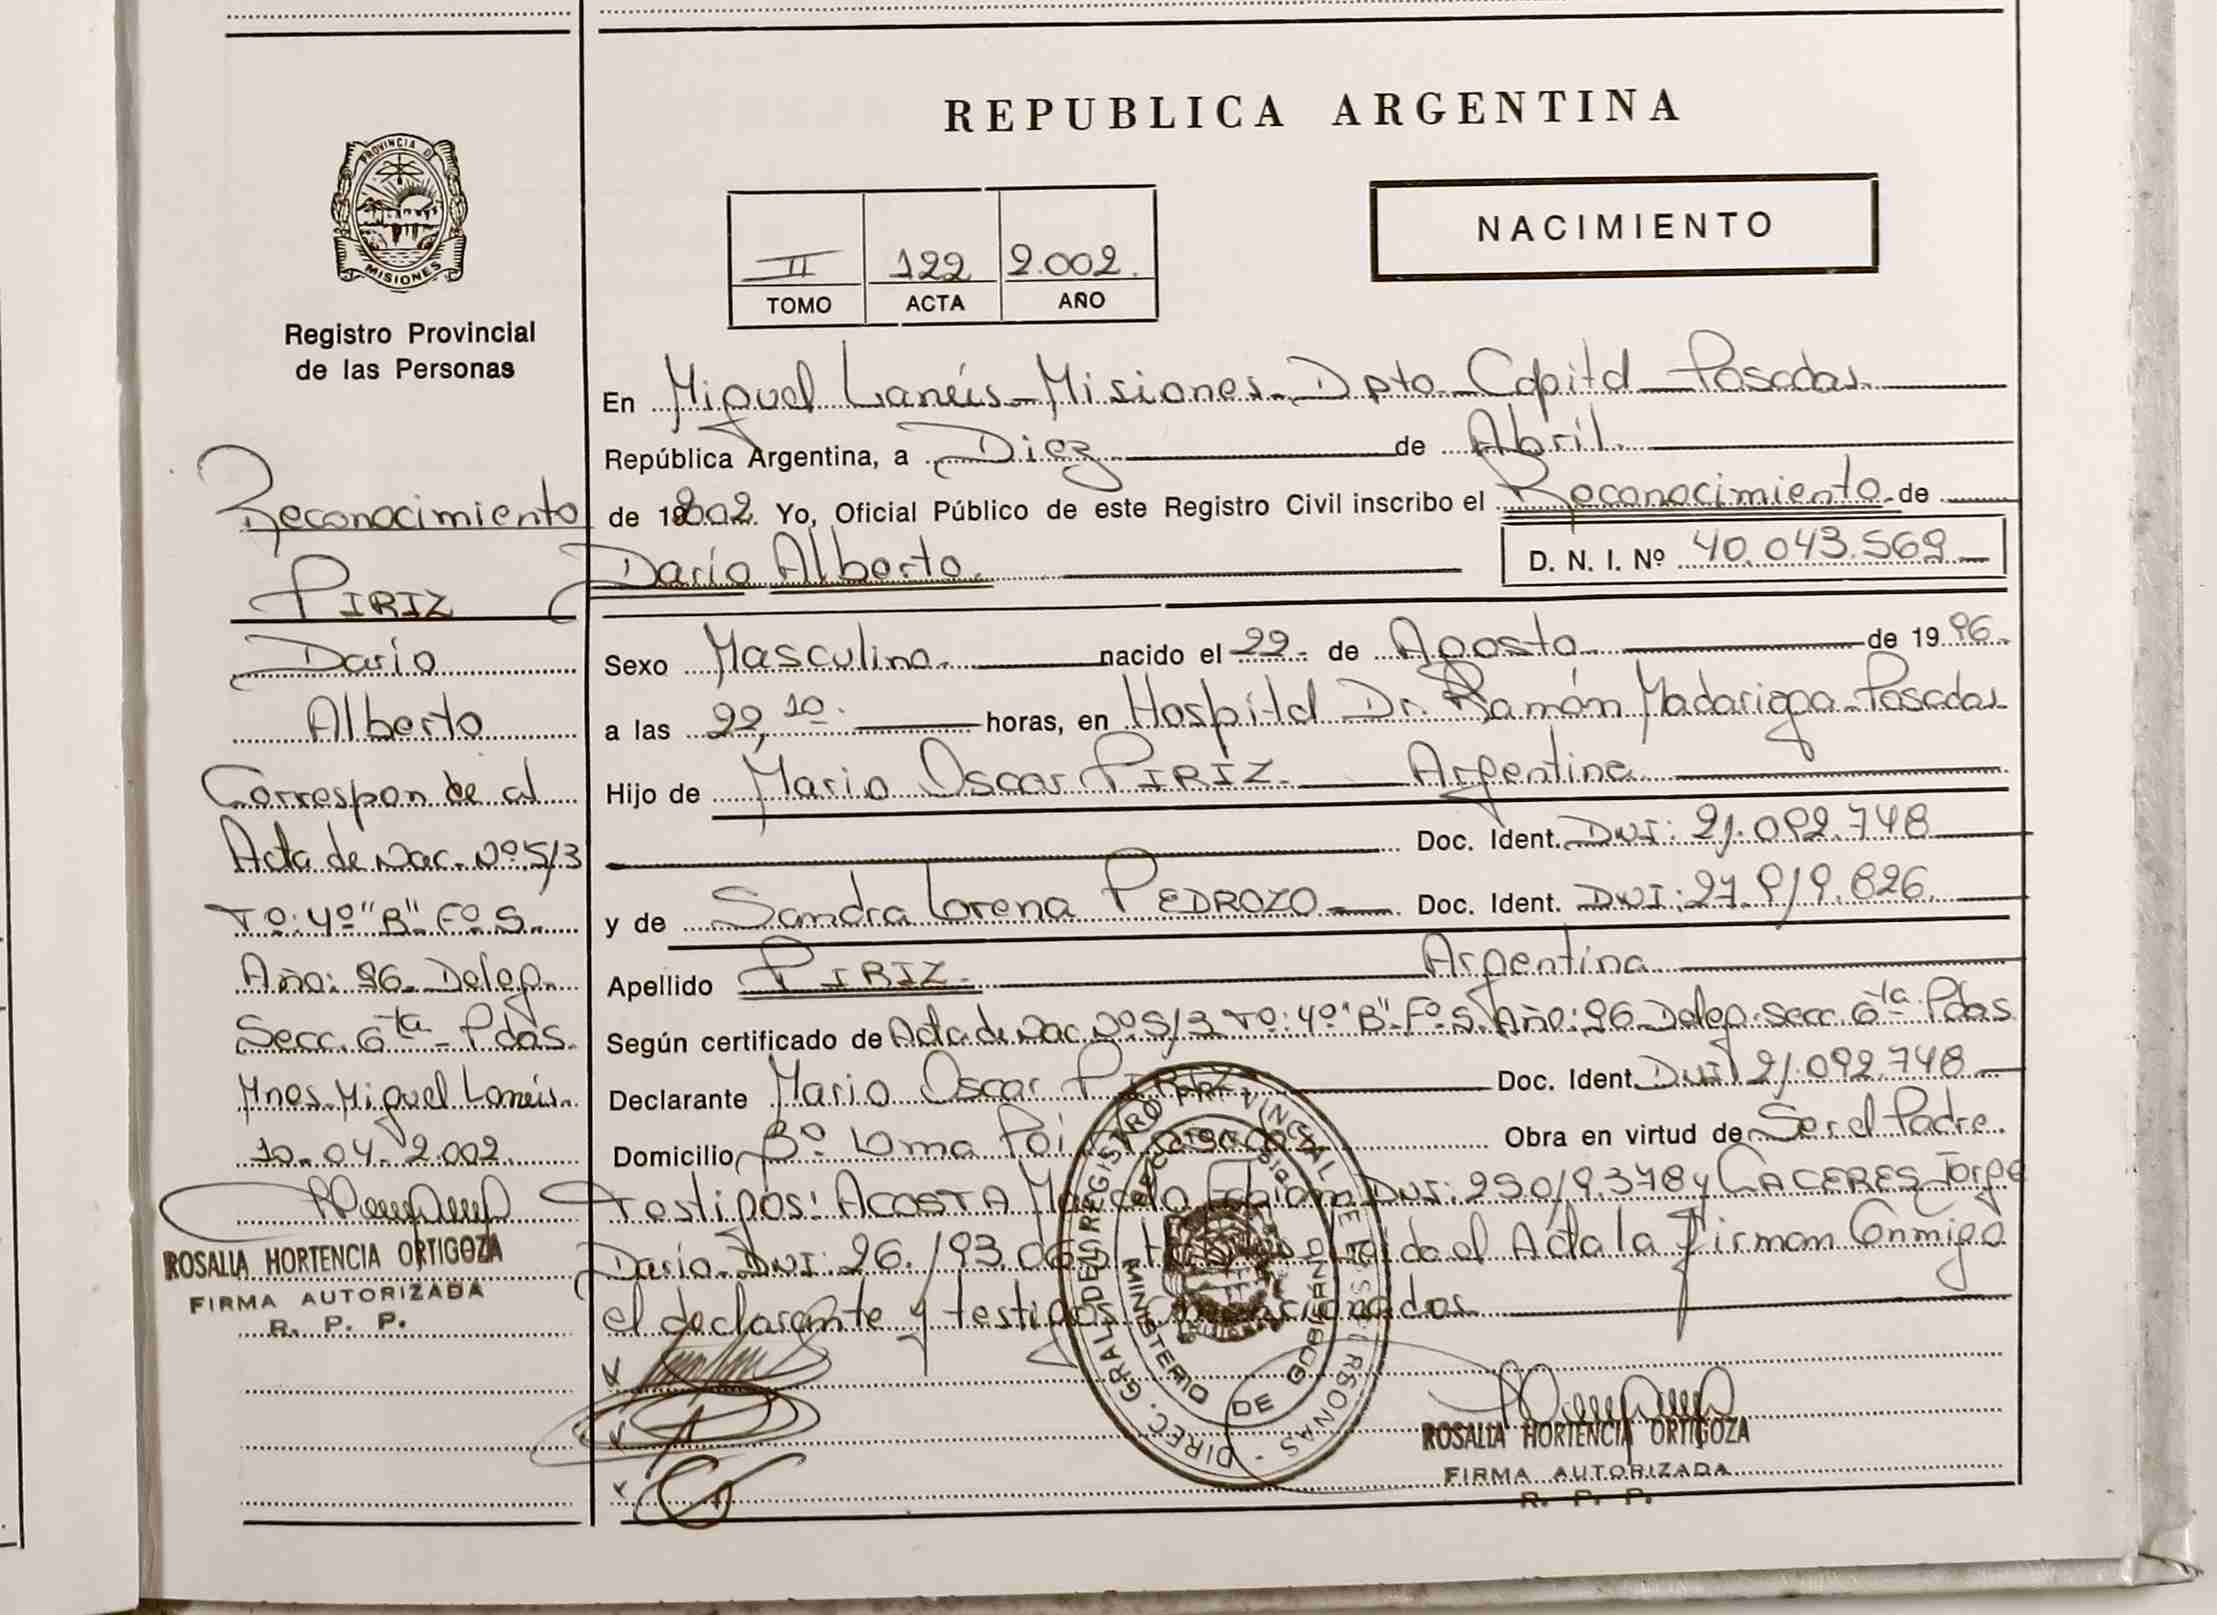 REPUBLICA ARGENTINA
NACIMIENTO
II 122 2.002.
TOMO ACTA AÑO
PROVINCIA D
MISIONES
Registro Provincial
de las Personas
Reconocimiento
PIRIZ
Dario
Alberto
Corresponde al
Acta de Nac. Nº 513
Tº: 4º "B" Fº S.
Año: 96. Deleg.
Secc. 6ta Pdas.
Mnes. Miguel Lanús.
10-04-2.002
ROSALIA HORTENCIA ORTIGOZA
FIRMA AUTORIZADA
R. P. P.
En Miguel Lanús - Misiones - Dpto - Capital - Posadas
República Argentina, a Diez de Abril
de 2002. Yo, Oficial Público de este Registro Civil inscribo el Reconocimiento de
Darío Alberto D. N. I. Nº 40.043.569
Sexo Masculino nacido el 22 de Agosto de 1996
a las 22,10 horas, en Hospital Dr. Ramón Madariaga - Posadas
Hijo de Mario Oscar PIRIZ Argentino
Doc. Ident. DNI: 21.092.748
y de Sandra Lorena PEDROZO Doc. Ident. DNI: 27.919.626
Apellido PIRIZ Argentina
Según certificado de Acta de Nac. Nº 513 Tº: 4º "B" Fº S. Año: 96 Deleg. Secc. 6ta Pdas
Declarante Mario Oscar PIRIZ Doc. Ident. DNI 21.092.748
Domicilio Bº Loma Poi Obra en virtud de Ser el Padre.
Testigos: ACOSTA Marcelo DNI: 25.019.378 y CACERES Jorge
Dario DNI: 26.193.06 el Acta la firman Conmigo
el declarante y testigos mencionados
DIREC. GRAL. DEL REGISTRO PROVINCIAL DE LAS PERSONAS
MINISTERIO DE GOBIERNO
ROSALIA HORTENCIA ORTIGOZA
FIRMA AUTORIZADA
R. P. P.